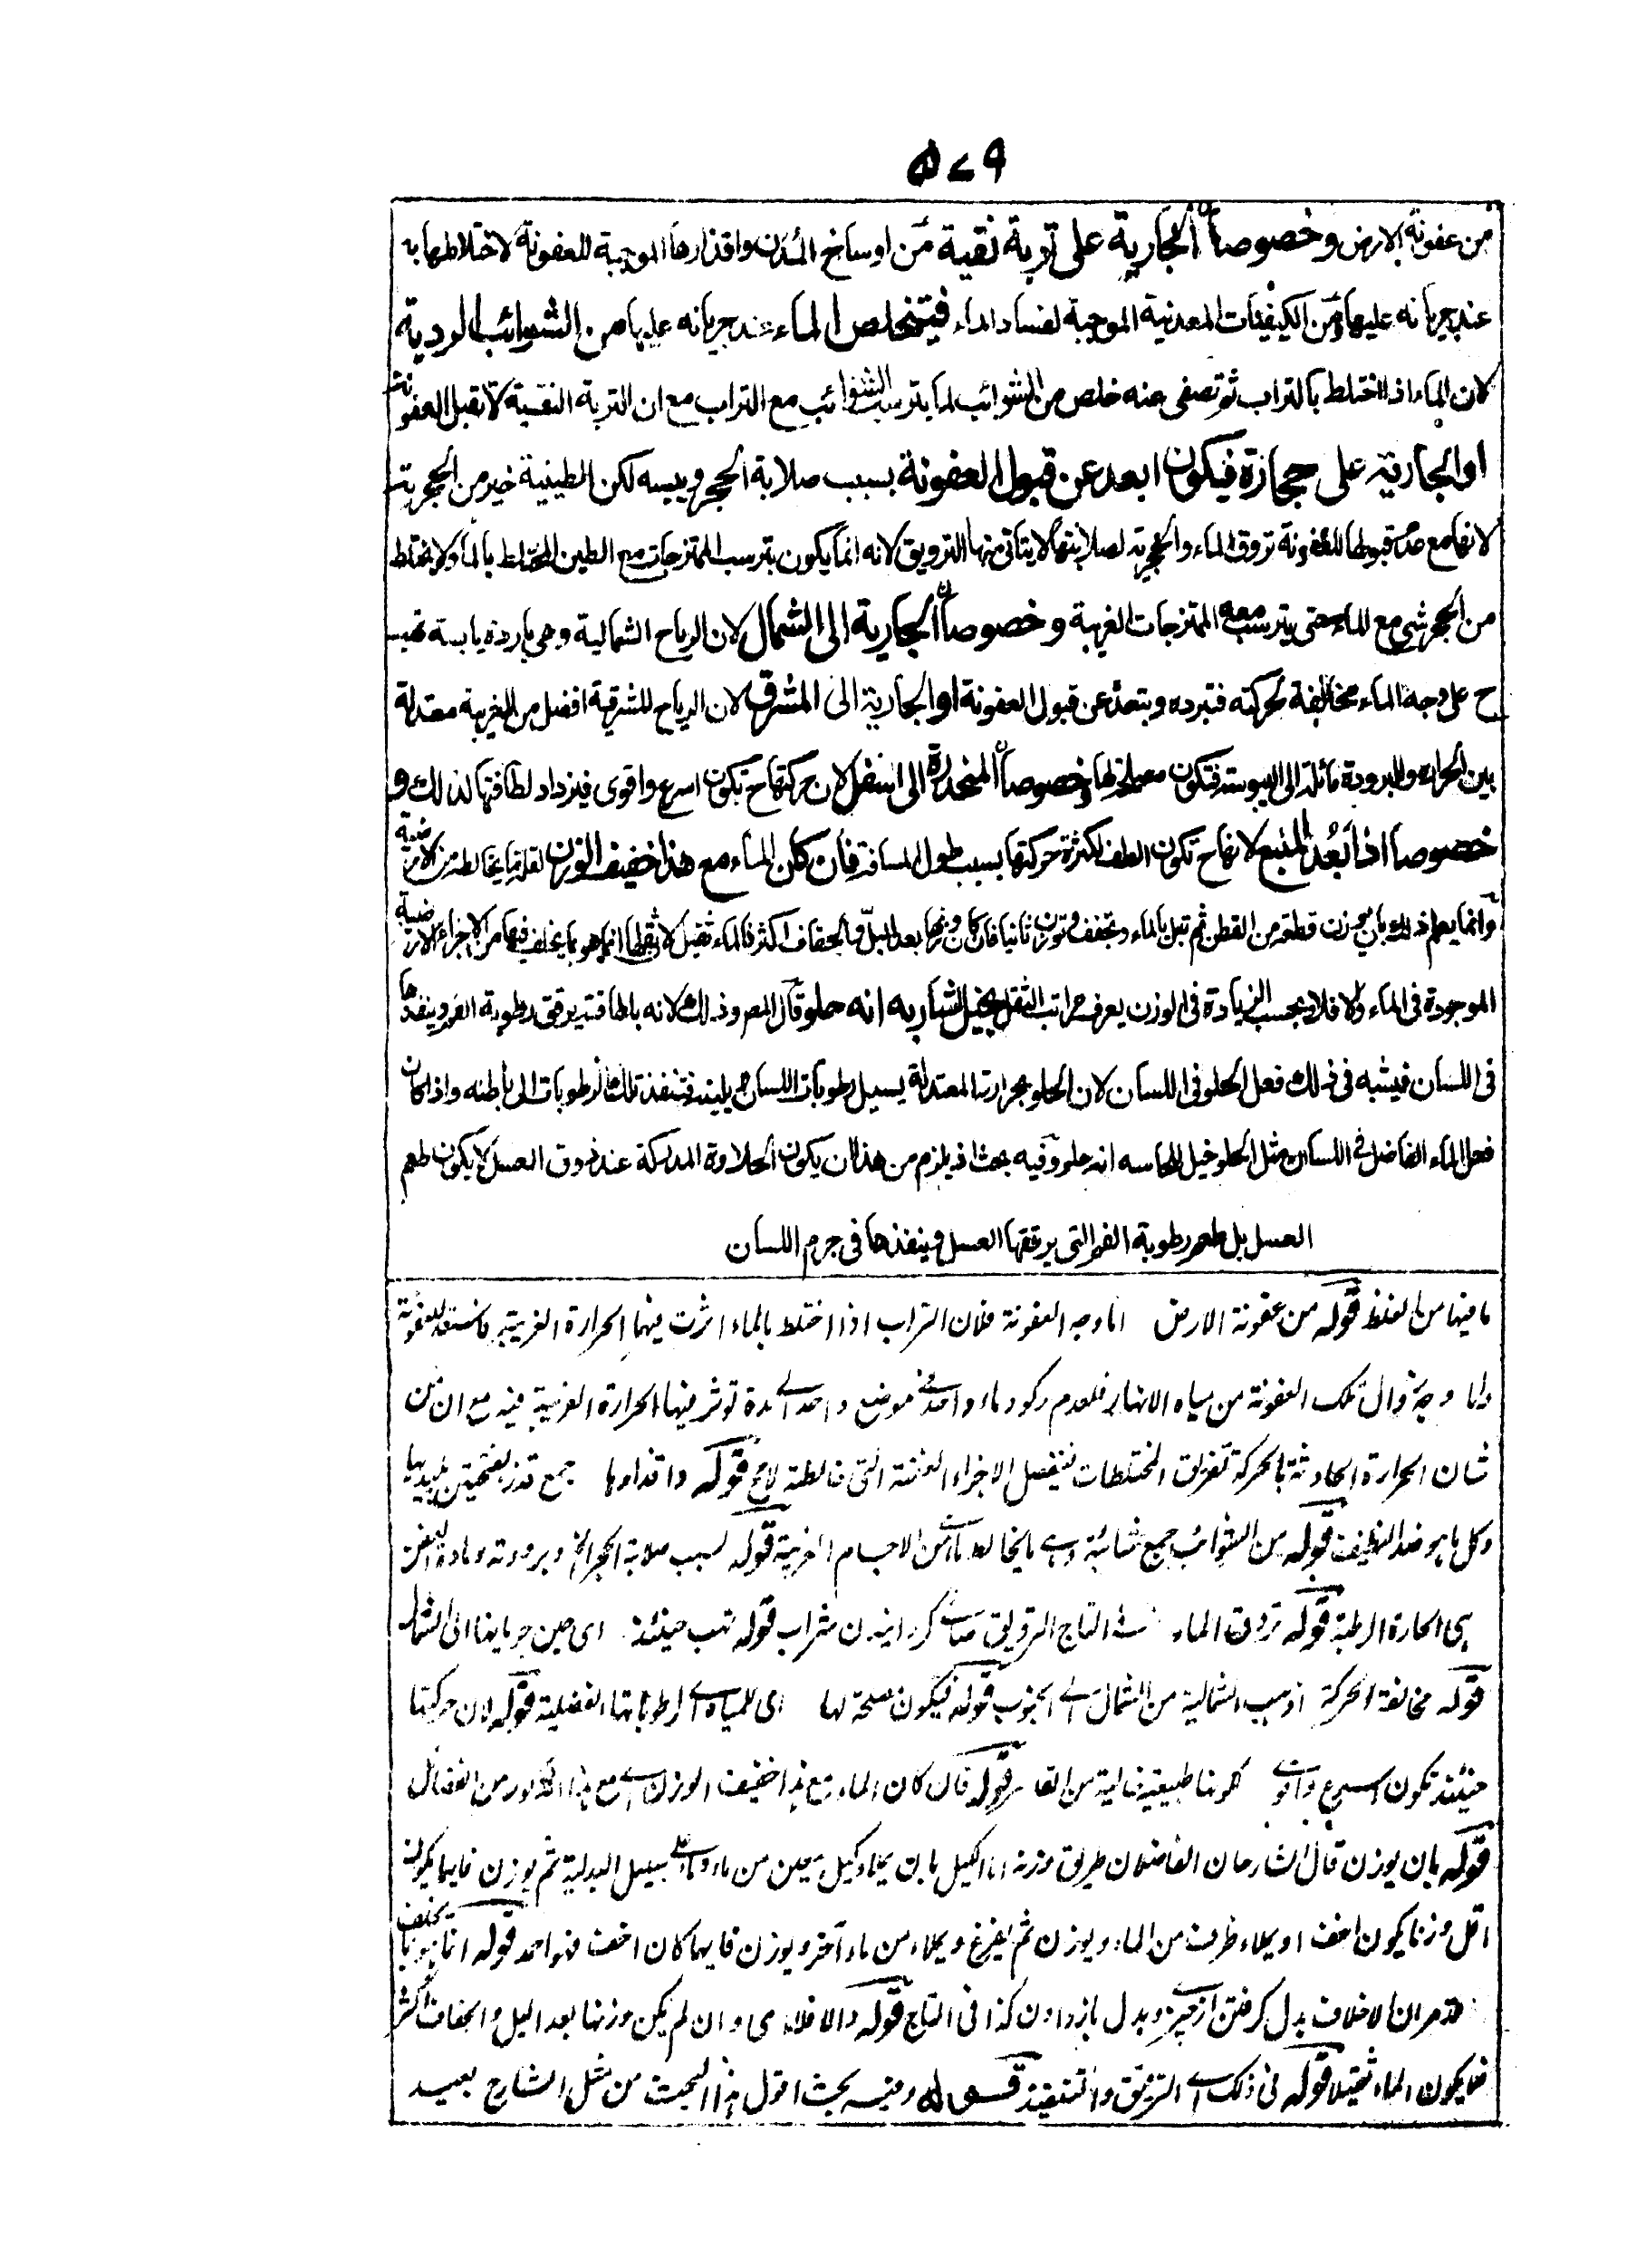 ۵۷۹
من عفونة الارض وخصوصا الجارية على تربة نقية من اوساخ المدن واقذارها الموجبة للعفونة لاختلاطها به
عند جريانه عليها ومن الكيفيات المعدنية الموجبة لفساد الماء فيتخلص الماء عند جريانه عليها من الشوائب الردية
لان الماء اذا اختلط بالتراب ثم تصفى عنه خلص من الشوائب لما يترسب الشوائب مع التراب مع ان التربة النقية لا تقبل العفونة
او الجارية على حجارة فيكون ابعد عن قبول العفونة بسبب صلابة الحجر ويبسه لكن الطينية خير من الحجرية
لانها مع عدم قبولها للعفونة تروق الماء والحجرية لصلابتها لا يتاتى منها الترويق لانه انما يكون بترسب الممتزجات مع الطين المختلط بالماء ولا يختلط
من الحجر شى مع الماء حتى يترسب معه الممتزجات الغريبة وخصوصا الجارية الى الشمال لان الرياح الشمالية وهى باردة يابسة تهب
ح على وجه الماء مخالفة لحركته فتبرده وبتعد عن قبول العفونة او الجارية الى المشرق لان الرياح الشرقية افضل من الغربية معتدلة
بين الحرارة والبرودة مائلة الى اليبوسة فتكون مصلحة لها وخصوصا المنحدرة الى اسفل لان حركتها ح تكون اسرع واقوى فيزداد لطافتها لذلك و
خصوصا اذا بعد المنبع لانها ح تكون الطف لكثرة حركتها بسبب طول المسافة فان كان الماء مع هذا خفيف الوزن لقلة ما يخالطه من الارضية
وانما يعلم ذلك بان يوزن قطعة من القطن ثم تبل بالماء وتجفف وتوزن ثانيا فان كان وزنها بعد البل والجفاف اكثر فالماء ثقيل لان ثقلها انما هو بما يخلف فيها من الاجزاء الارضية
الموجودة فى الماء والا فلا وبحسب الزيادة فى الوزن يعرف مراتب الثقل يخيل لشاربه انه حلو قال المص وذلك لانه بلطافته يرقق رطوبة الفم وينفذها
فى اللسان فيشبه فى ذلك فعل الحلو فى اللسان لان الحلو بحرارته المعتدلة يسيل رطوبات اللسان و يلينه فتنفذ تلك الرطوبات الى باطنه واذا كان
فعل الماء الفاضل فى اللسان مثل الحلو خيل للحاسه انه حلو وفيه بحث اذ يلزم من هذا ان يكون الحلاوة المدركة عند ذوق العسل لا يكون طعم
العسل بل طعم رطوبة الفم التى يرققها العسل وينفذها فى جرم اللسان
ما فيها من الغلظ قوله من عفونة الارض اما وجه العفونة فلان التراب اذا اختلط بالماء اثرت فيهما الحرارة الغريبة فاستعد للعفونة
واما وجه زوال تلك العفونة من مياه الانهار فلعدم ركود ماء واحد فى موضع واحد الى مدة توثر فيها الحرارة الغريبة فيه مع ان من
شان الحرارة الحادثة بالحركة تفريق المختلطات فينفصل الاجزاء العفنة التى خالطته لا مح قوله واقذارها جمع قذر بفتحتين پليديها
وكل ما هو ضد النظيف قوله من الشوائب جمع شائبة وهى ما يخالط الماء من الاجسام الغريبة قوله بسبب صلابة الحجر الخ وبرودته ومادة العفن
هى الحارة الرطبة قوله تروق الماء فى التاج الترويق صافى كردانيدن شراب قوله تهب حينئذ اى حين جريانها الى الشمال
قوله مخالفة الحركة اذ مهب الشمالية من الشمال الى الجنوب قوله فيكون مصلحة لها اى للمياه اى لرطوباتها الفضلية قوله لان حركتها
حينئذ تكون اسرع واقوى لكونها طبيعية خالية من القاسر قوله فان كان الماء مع هذا خفيف الوزن اى مع هذا المذكور من الفضائل
قوله بان يوزن قال الشارحان الفاضلان طريق وزنه اما الكيل بان يملاء كيل معين من ماء وماء على سبيل البدلية ثم يوزن فايهما يكون
اقل وزنا يكون اخف او يملاء ظرف من الماء ويوزن ثم يفرغ ويملاء من ماء آخر ويوزن فايهما كان اخف فهو احمد قوله انما هو بما يخلف
مر ان الاخلاف بدل گرفتن از چيزى وبدل بازدادن كذا فى التاج قوله والا فلا اى وان لم يكن وزنها بعد البل والجفاف اكثر
فلا يكون الماء ثقيلا قوله فى ذلك اى الترقيق والتنفيذ قوله وفيه بحث اقول هذا البحث من مثل الشارح بعيد